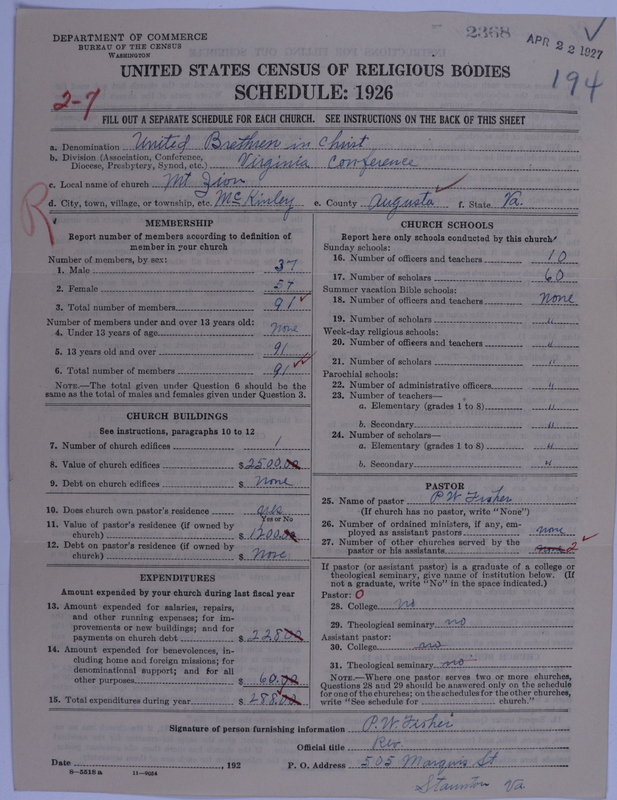 DEPARTMENT OF COMMERCE
BUREAU OF THE CENSUS
WASHINGTON
2368
APR 22 1927
194
2-7
UNITED STATES CENSUS OF RELIGIOUS BODIES
SCHEDULE: 1926
FILL OUT A SEPARATE SCHEDULE FOR EACH CHURCH. SEE INSTRUCTIONS ON THE BACK OF THIS SHEET
a. Denomination United Brethren in Christ
b. Division (Association, Conference, Diocese, Presbytery, Synod, etc.) Virginia Conference
c. Local name of church Mt Zion
d. City, town, village, or township, etc. McKinley e. County Augusta f. State Va.
R
MEMBERSHIP
Report number of members according to definition of
member in your church
Number of members, by sex:
1. Male 37
2. Female 54
3. Total number of members 91
Number of members under and over 13 years old:
4. Under 13 years of age None
5. 13 years old and over 91
6. Total number of members 91
NOTE.—The total given under Question 6 should be the
same as the total of males and females given under Question 3.
CHURCH BUILDINGS
See instructions, paragraphs 10 to 12
7. Number of church edifices 1
8. Value of church edifices $ 2500.00
9. Debt on church edifices $ None
10. Does church own pastor's residence Yes
Yes or No
11. Value of pastor's residence (if owned by
church) $ 1200.00
12. Debt on pastor's residence (if owned by
church) $ None
EXPENDITURES
Amount expended by your church during last fiscal year
13. Amount expended for salaries, repairs,
and other running expenses; for im-
provements or new buildings; and for
payments on church debt $ 228.00
14. Amount expended for benevolences, in-
cluding home and foreign missions; for
denominational support; and for all
other purposes $ 60.00
15. Total expenditures during year $ 288.00
CHURCH SCHOOLS
Report here only schools conducted by this church
Sunday schools:
16. Number of officers and teachers 10
17. Number of scholars 60
Summer vacation Bible schools:
18. Number of officers and teachers None
19. Number of scholars "
Week-day religious schools:
20. Number of officers and teachers "
21. Number of scholars "
Parochial schools:
22. Number of administrative officers "
23. Number of teachers—
a. Elementary (grades 1 to 8) "
b. Secondary "
24. Number of scholars—
a. Elementary (grades 1 to 8) "
b. Secondary "
PASTOR
25. Name of pastor P.W. Fisher
(If church has no pastor, write "None")
26. Number of ordained ministers, if any, em-
ployed as assistant pastors none
27. Number of other churches served by the
pastor or his assistants None 2
If pastor (or assistant pastor) is a graduate of a college or
theological seminary, give name of institution below. (If
not a graduate, write "No" in the space indicated.)
Pastor: 0
28. College no
29. Theological seminary no
Assistant pastor:
30. College no
31. Theological seminary no
NOTE.—Where one pastor serves two or more churches,
Questions 28 and 29 should be answered only on the schedule
for one of the churches; on the schedules for the other churches,
write "See schedule for ____ church."
Signature of person furnishing information P.W. Fisher
Official title Rev.
Date ____, 192 P. O. Address 505 Marquis St
8—5518 a 11—9054
Staunton Va